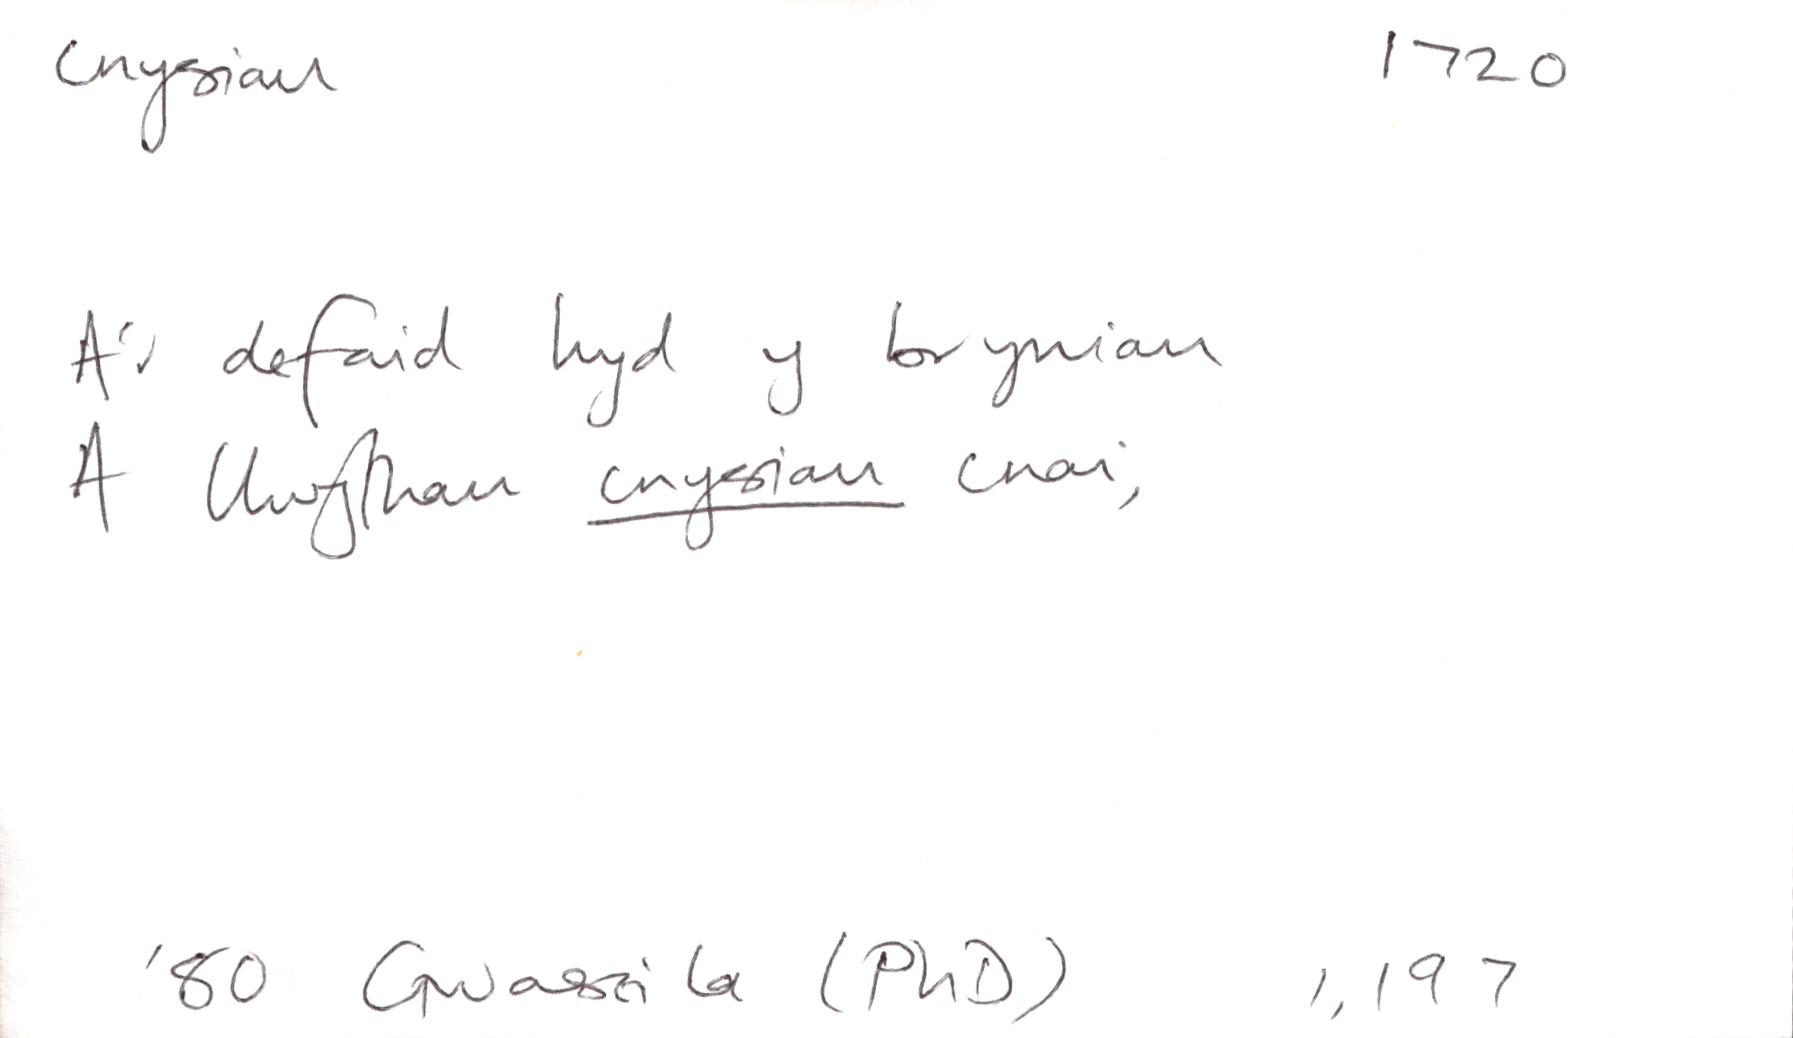 cnysiau 1720
A'r defaid hyd y bryniau
A llwythau cnysiau cnai,
'80 Gwaseila (PhD) 1, 197